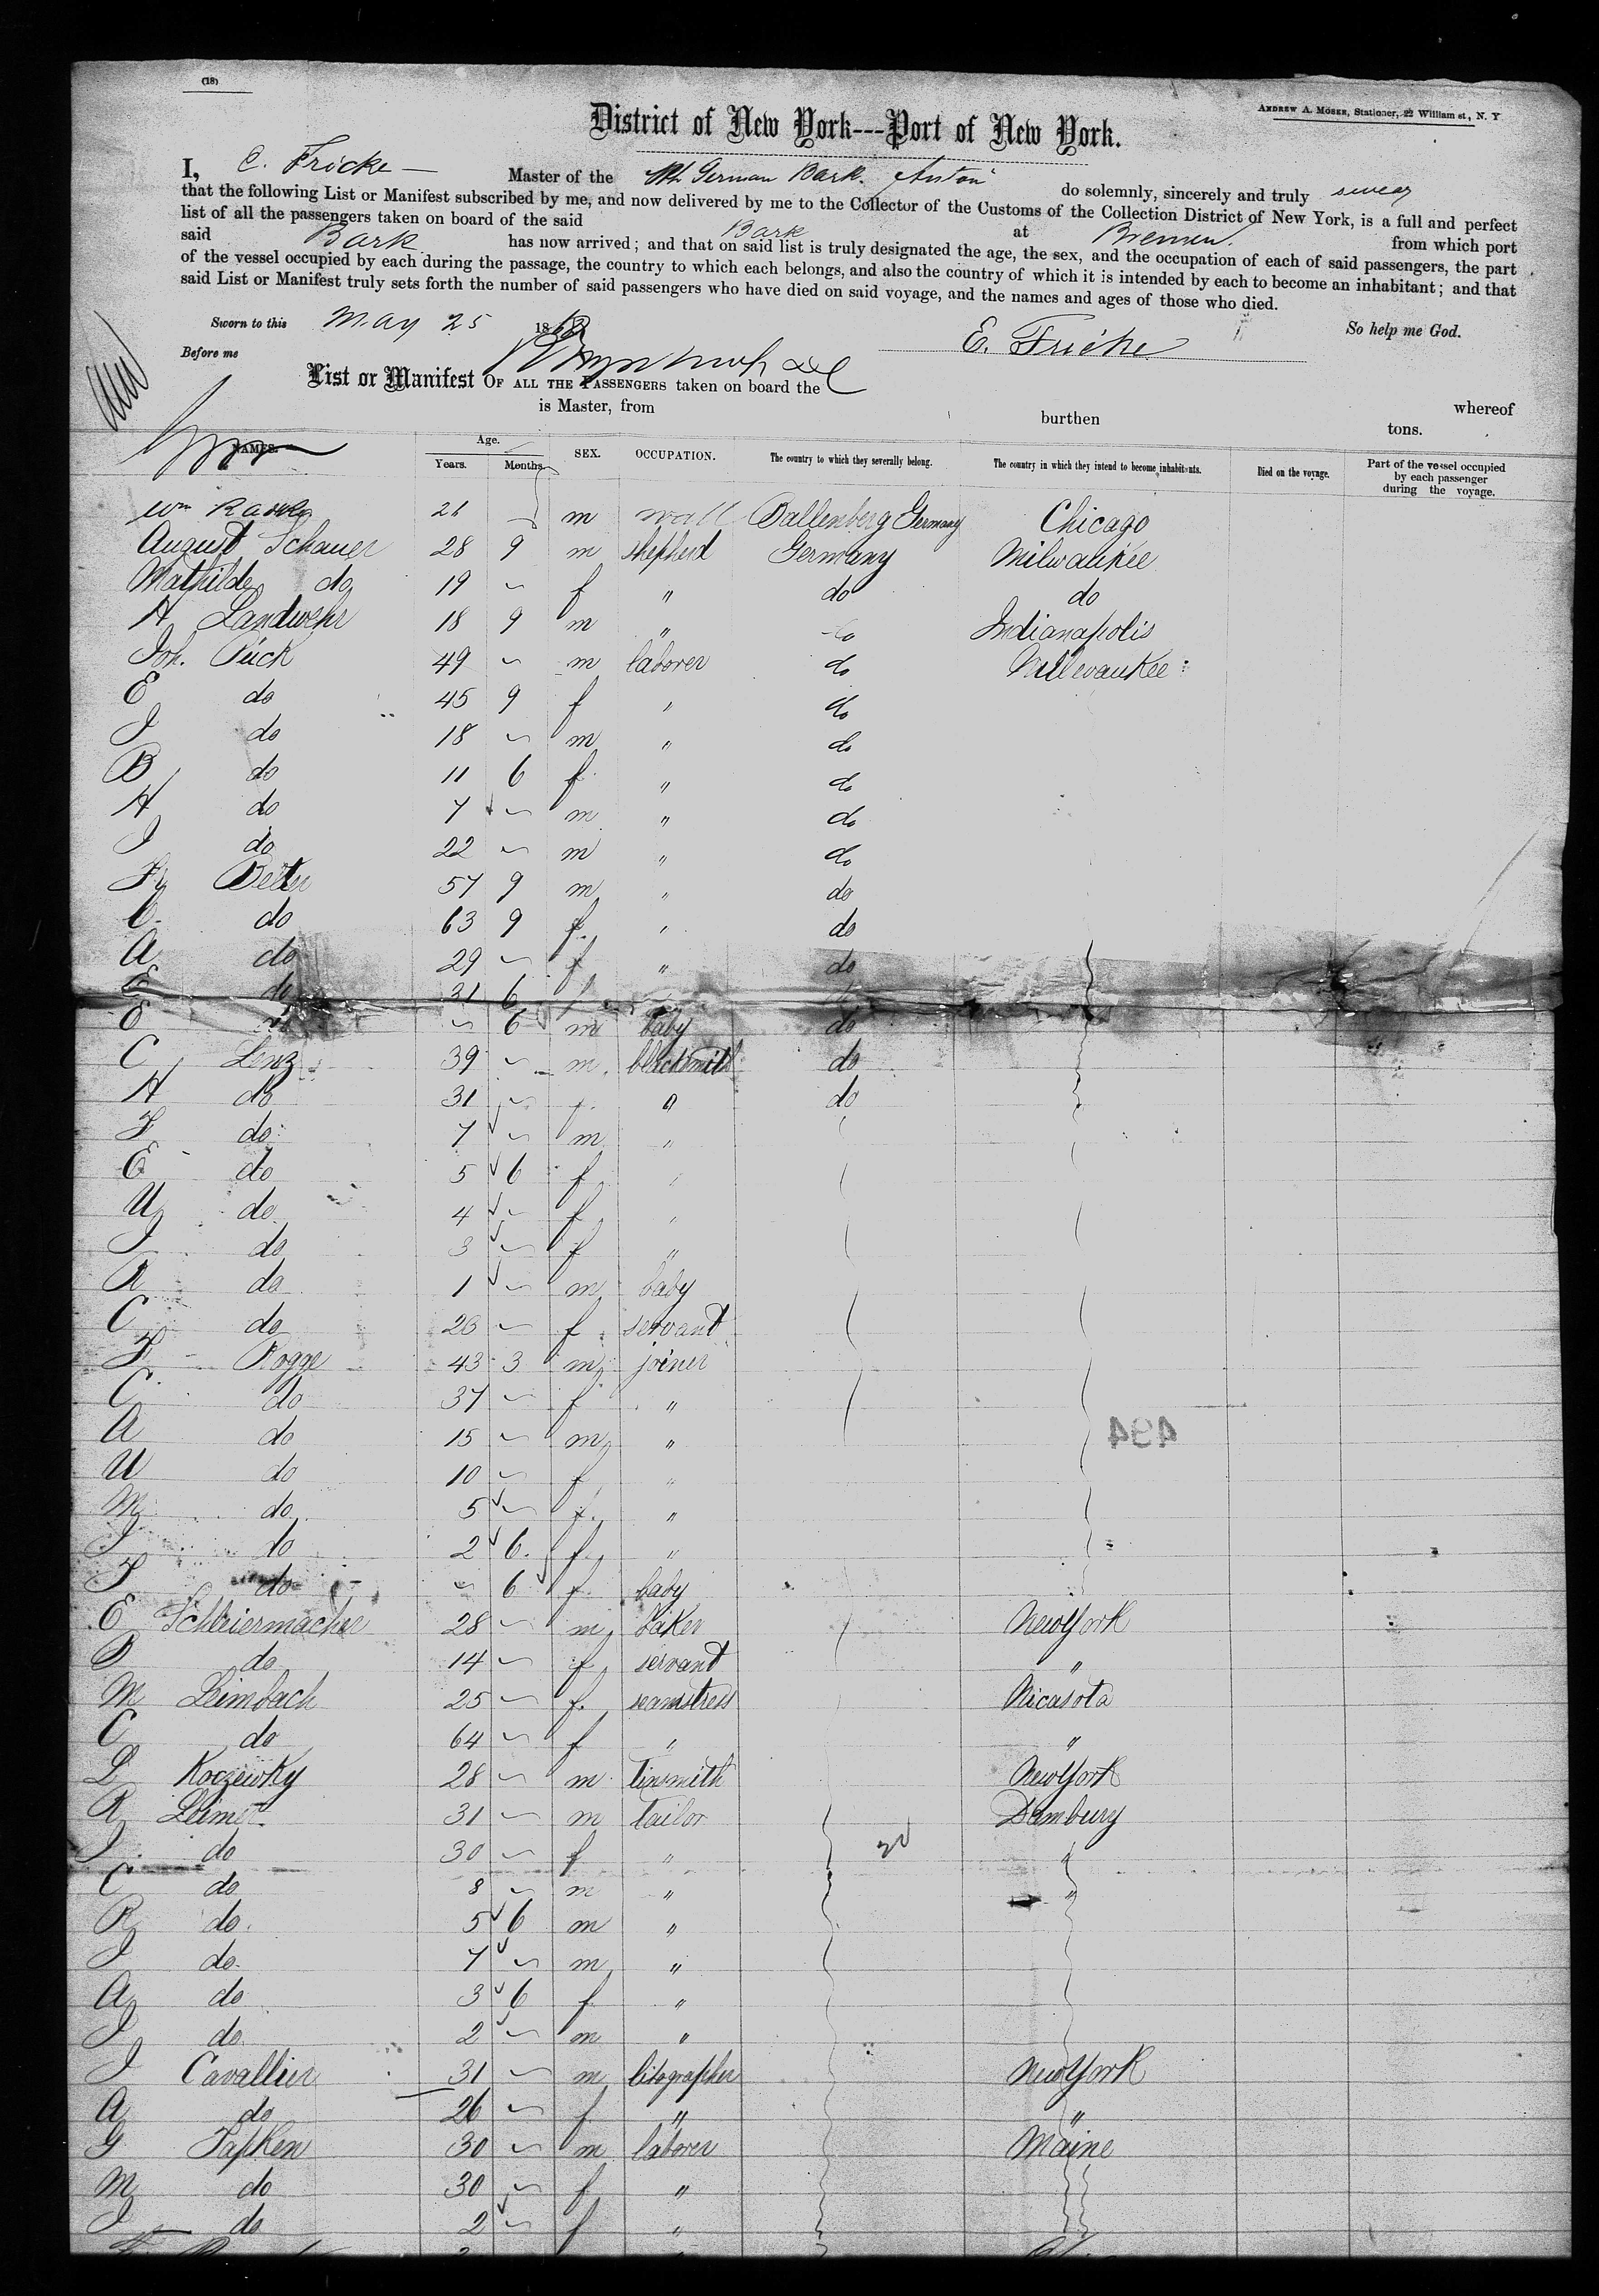 (18)
ANDREW A. MOSER, Stationer, 22 William st., N. Y
District of New York---Port of New York.
I, C. Fricke Master of the Nth German Bark. Anton do solemnly, sincerely and truly swear
that the following List or Manifest subscribed by me, and now delivered by me to the Collector of the Customs of the Collection District of New York, is a full and perfect
list of all the passengers taken on board of the said Bark at Bremen. from which port
said Bark has now arrived; and that on said list is truly designated the age, the sex, and the occupation of each of said passengers, the part
of the vessel occupied by each during the passage, the country to which each belongs, and also the country of which it is intended by each to become an inhabitant; and that
said List or Manifest truly sets forth the number of said passengers who have died on said voyage, and the names and ages of those who died.
Sworn to this May 25 1868 So help me God.
Before me E. Fricke
List or Manifest OF ALL THE PASSENGERS taken on board the
is Master, from burthen whereof
tons.
NAMES. Age. SEX. OCCUPATION. The country to which they severally belong. The country in which they intend to become inhabitants. Died on the voyage. Part of the vessel occupied by each passenger during the voyage.
Years. Months.
Wm 21 m Ballenberg Germany Chicago
August Schauer 28 9 m shepherd Germany Milwaukee
Mathilde do 19 f " do do
H Landwehr 18 9 m " do Indianapolis
Joh. Pück 49 m laborer do Millevaukee
E do 45 9 f " do
J do 18 m " do
B do 11 6 f " do
H do 7 m " do
J do 22 m " do
Fr Better 57 9 m " do
C. do 63 9 f. " do
A do 29 f " do
E do 31 6 f
E do 6 m baby do
C Lenz 39 m. blacksmith do
H do 31 f. " do
F do 7 m "
E do 5 6 f "
U do 4 f "
J do 3 f "
R do 1 m baby
C do 26 f servant
F Rogge 43 3 m joiner
C do 37 f "
A do 15 m "
U do 10 f "
M do 5 f. "
J do 2 6. f. "
F do 6 f. baby
E Schleiermacher 28 m baker New York
D do 14 f servant "
M Leimbach 25 f. seamstress Nicasota
C do 64 f " "
L Koczewky 28 m tinsmith New York
R Leimer 31 m Tailor Dembury
J do 30 f " "
C do 8 m " "
R do. 5 6 m "
J do. 7 m "
A do 3 6 f "
J do. 2 m "
J Cavallier 31 m litographer New York
A do 26 f " "
G Tapken 30 m laborer Maine
M do 30 f "
J do 2 f "
494